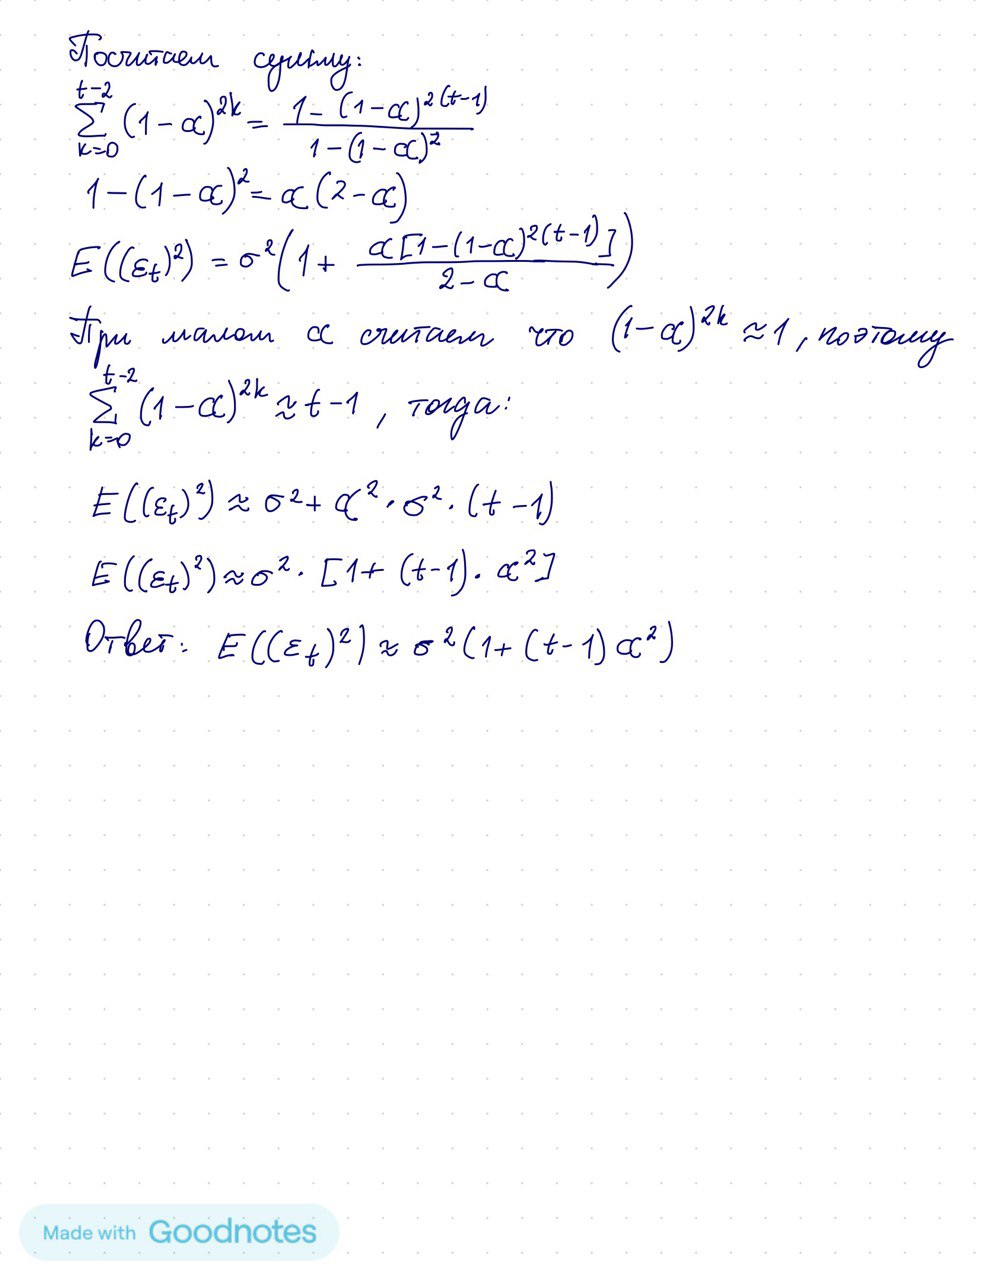 Посчитаем сумму:
t-2
∑ (1-α)^{2k} = \frac{1-(1-α)^{2(t-1)}}{1-(1-α)^2}
k=0
1-(1-α)^2 = α(2-α)
E((ε_t)^2) = σ^2(1+ \frac{α[1-(1-α)^{2(t-1)}]}{2-α})
При малом α считаем что (1-α)^{2k} ≈ 1, поэтому
t-2
∑ (1-α)^{2k} ≈ t-1, тогда:
k=0
E((ε_t)^2) ≈ σ^2+ α^2·σ^2·(t-1)
E((ε_t)^2) ≈ σ^2·[1+(t-1)·α^2]
Ответ: E((ε_t)^2) ≈ σ^2(1+(t-1)α^2)
Made with Goodnotes